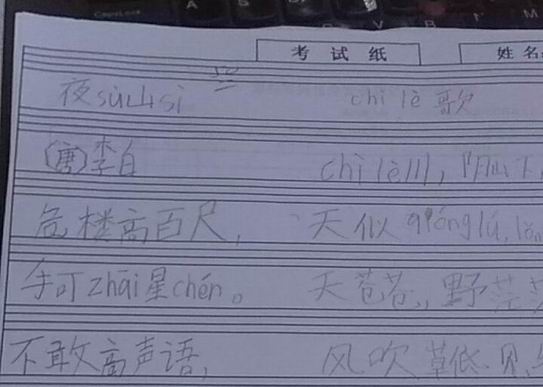 考试纸
姓名
夜sù山sì
(唐)李白
危楼高百尺，
手可zhāi星chén。
不敢高声语，
chì lè 歌
chì lè川，阴山下
天似qióng lú，
天苍苍，野茫茫
风吹草低见